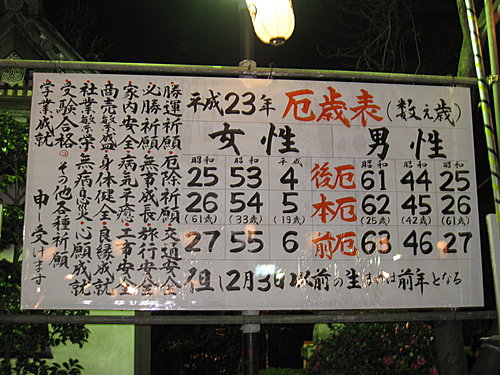 平成23年 厄歳表(数え歳)
女性 男性
昭和 昭和 平成 昭和 昭和 昭和
25 53 4 後厄 61 44 25
26 54 5 本厄 62 45 26
(61歳) (33歳) (19歳) (25歳) (42歳) (61歳)
27 55 6 前厄 63 46 27
但し2月3日以前の生まれは前年となる
勝運祈願・厄除祈願・交通安全
必勝祈願・無事成長・旅行安全
家内安全・病気平癒・工事安全
商売繁盛・身体健全・良縁成就
社業繁栄・無病息災・心願成就
受験合格 ◎その他各種祈願
学業成就 申し受けます